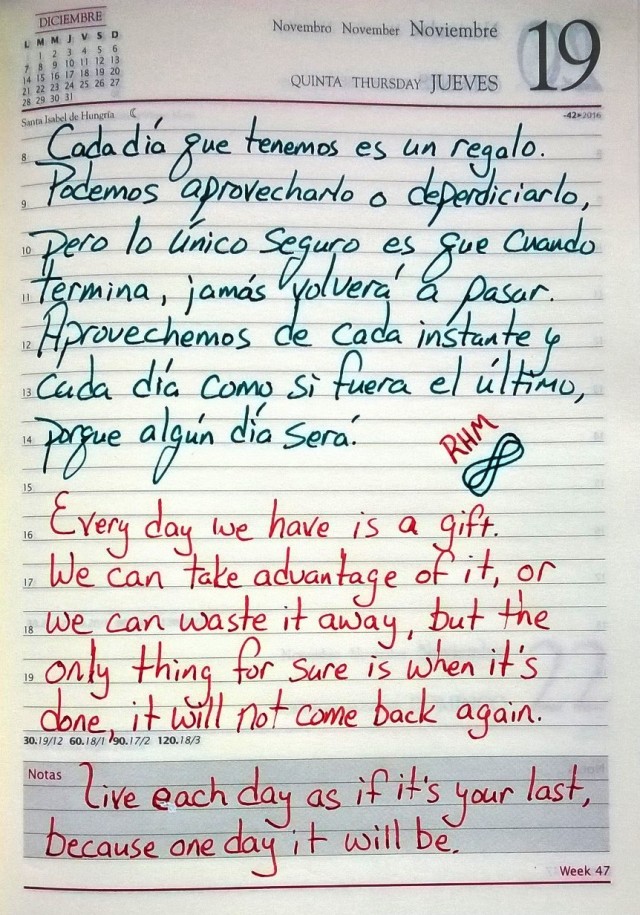 DICIEMBRE
L M M J V S D
1 2 3 4 5 6
7 8 9 10 11 12 13
14 15 16 17 18 19 20
21 22 23 24 25 26 27
28 29 30 31
Novembro November Noviembre
19
QUINTA THURSDAY JUEVES
Santa Isabel de Hungría
-42•2016
8 Cada día que tenemos es un regalo.
9 Podemos aprovecharlo o deperdiciarlo,
10 pero lo único seguro es que cuando
11 termina, jamás volverá a pasar.
12 Aprovechemos de cada instante y
13 cada día como si fuera el último,
14 porque algún día será.
RHM
15
16 Every day we have is a gift.
17 We can take advantage of it, or
18 we can waste it away, but the
19 only thing for sure is when it's
done, it will not come back again.
30.19/12 60.18/1 90.17/2 120.18/3
Notas live each day as if it's your last,
because one day it will be.
Week 47